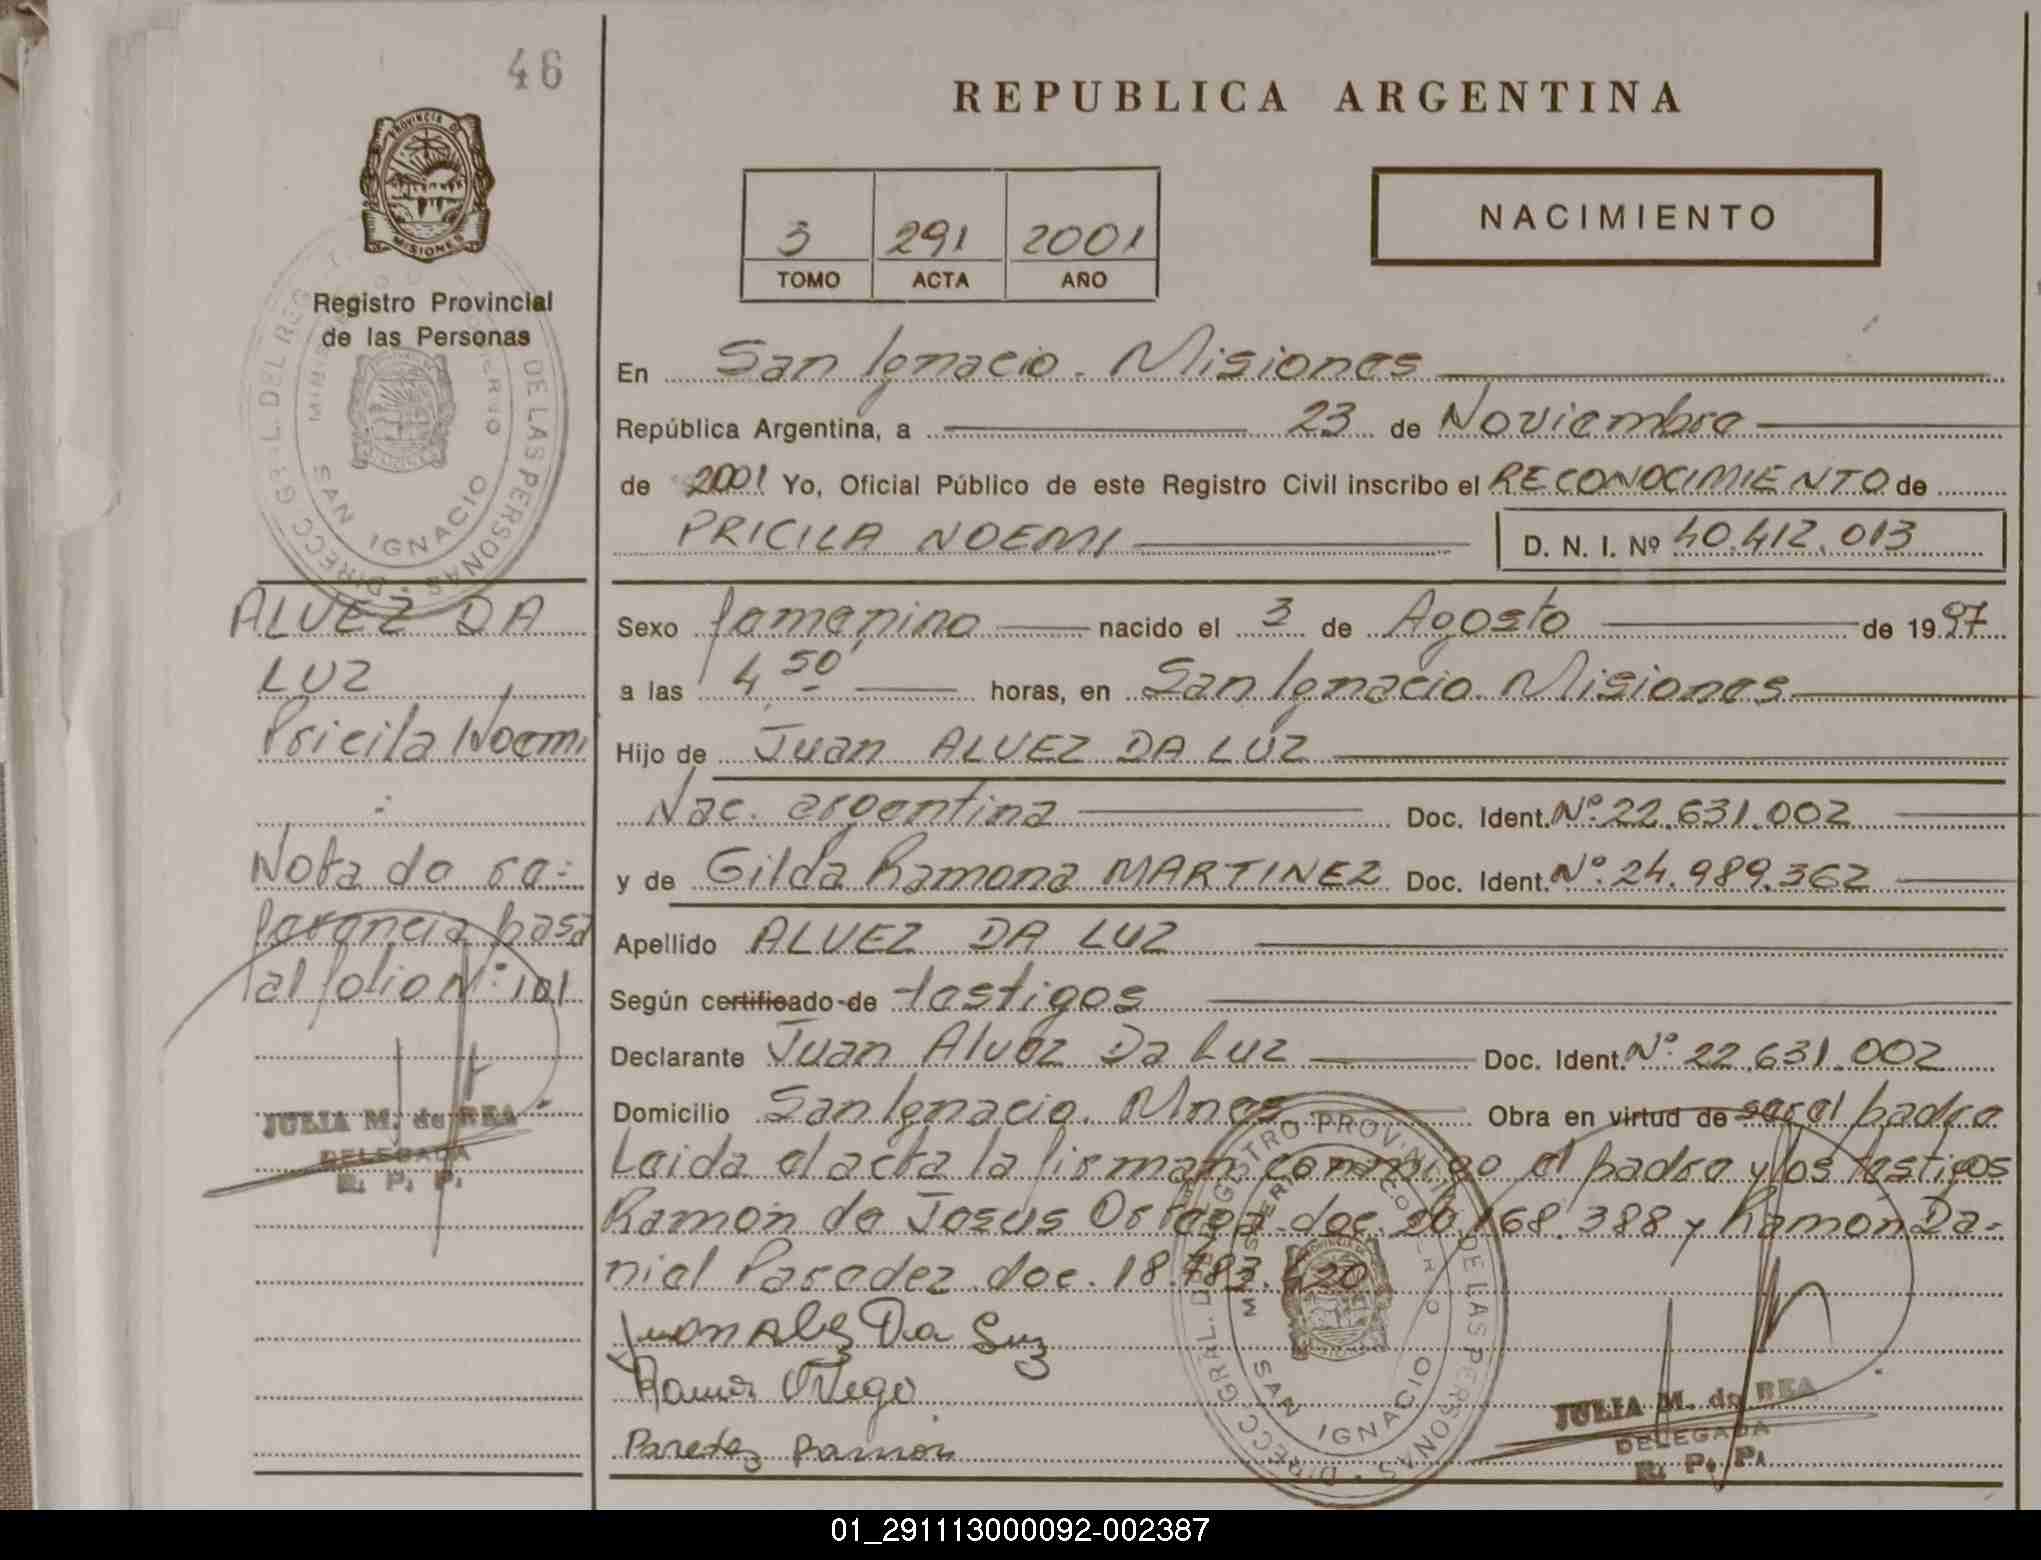 46
REPUBLICA ARGENTINA
PROVINCIA DE
MISIONES
Registro Provincial
de las Personas
3 291 2001
TOMO ACTA AÑO
NACIMIENTO
En San Ignacio. Misiones
República Argentina, a 23 de Noviembre
de 2001 Yo, Oficial Público de este Registro Civil inscribo el RECONOCIMIENTO de
PRICILA NOEMI D. N. I. Nº 40.412.013
DIRECC GRAL. DEL REG DE LAS PERSONAS
SAN IGNACIO
ALVEZ DA
LUZ
Pricila Noemi
Nota de re=
ferencia pasa
al folio Nº: 101
JULIA M. de REA
DELEGADA
R. P. P.
Sexo femenino nacido el 3 de Agosto de 1997
a las 4 50' horas, en San Ignacio Misiones
Hijo de Juan ALVEZ DA LUZ
Nac. argentina Doc. Ident. Nº 22.631.002
y de Gilda Ramona MARTINEZ Doc. Ident. Nº 24.989.362
Apellido ALVEZ DA LUZ
Según certificado de testigos
Declarante Juan Alvez Da Luz Doc. Ident. Nº 22.631.002
Domicilio San Ignacio. Mnes Obra en virtud de ser el padre
Leida el acta la firman conmigo el padre y los testigos
Ramón de Jesús Ortega doc. 20.168.388 y Ramón Da=
niel Paredez doc. 18.783.420
Juan Alvez Da Luz
Ramon Ortega
Paredez Ramon
DIRECC GRAL. DEL REGISTRO PROVINCIAL DE LAS PERSONAS
SAN IGNACIO
JULIA M. de REA
DELEGADA
R. P. P.
01_291113000092-002387